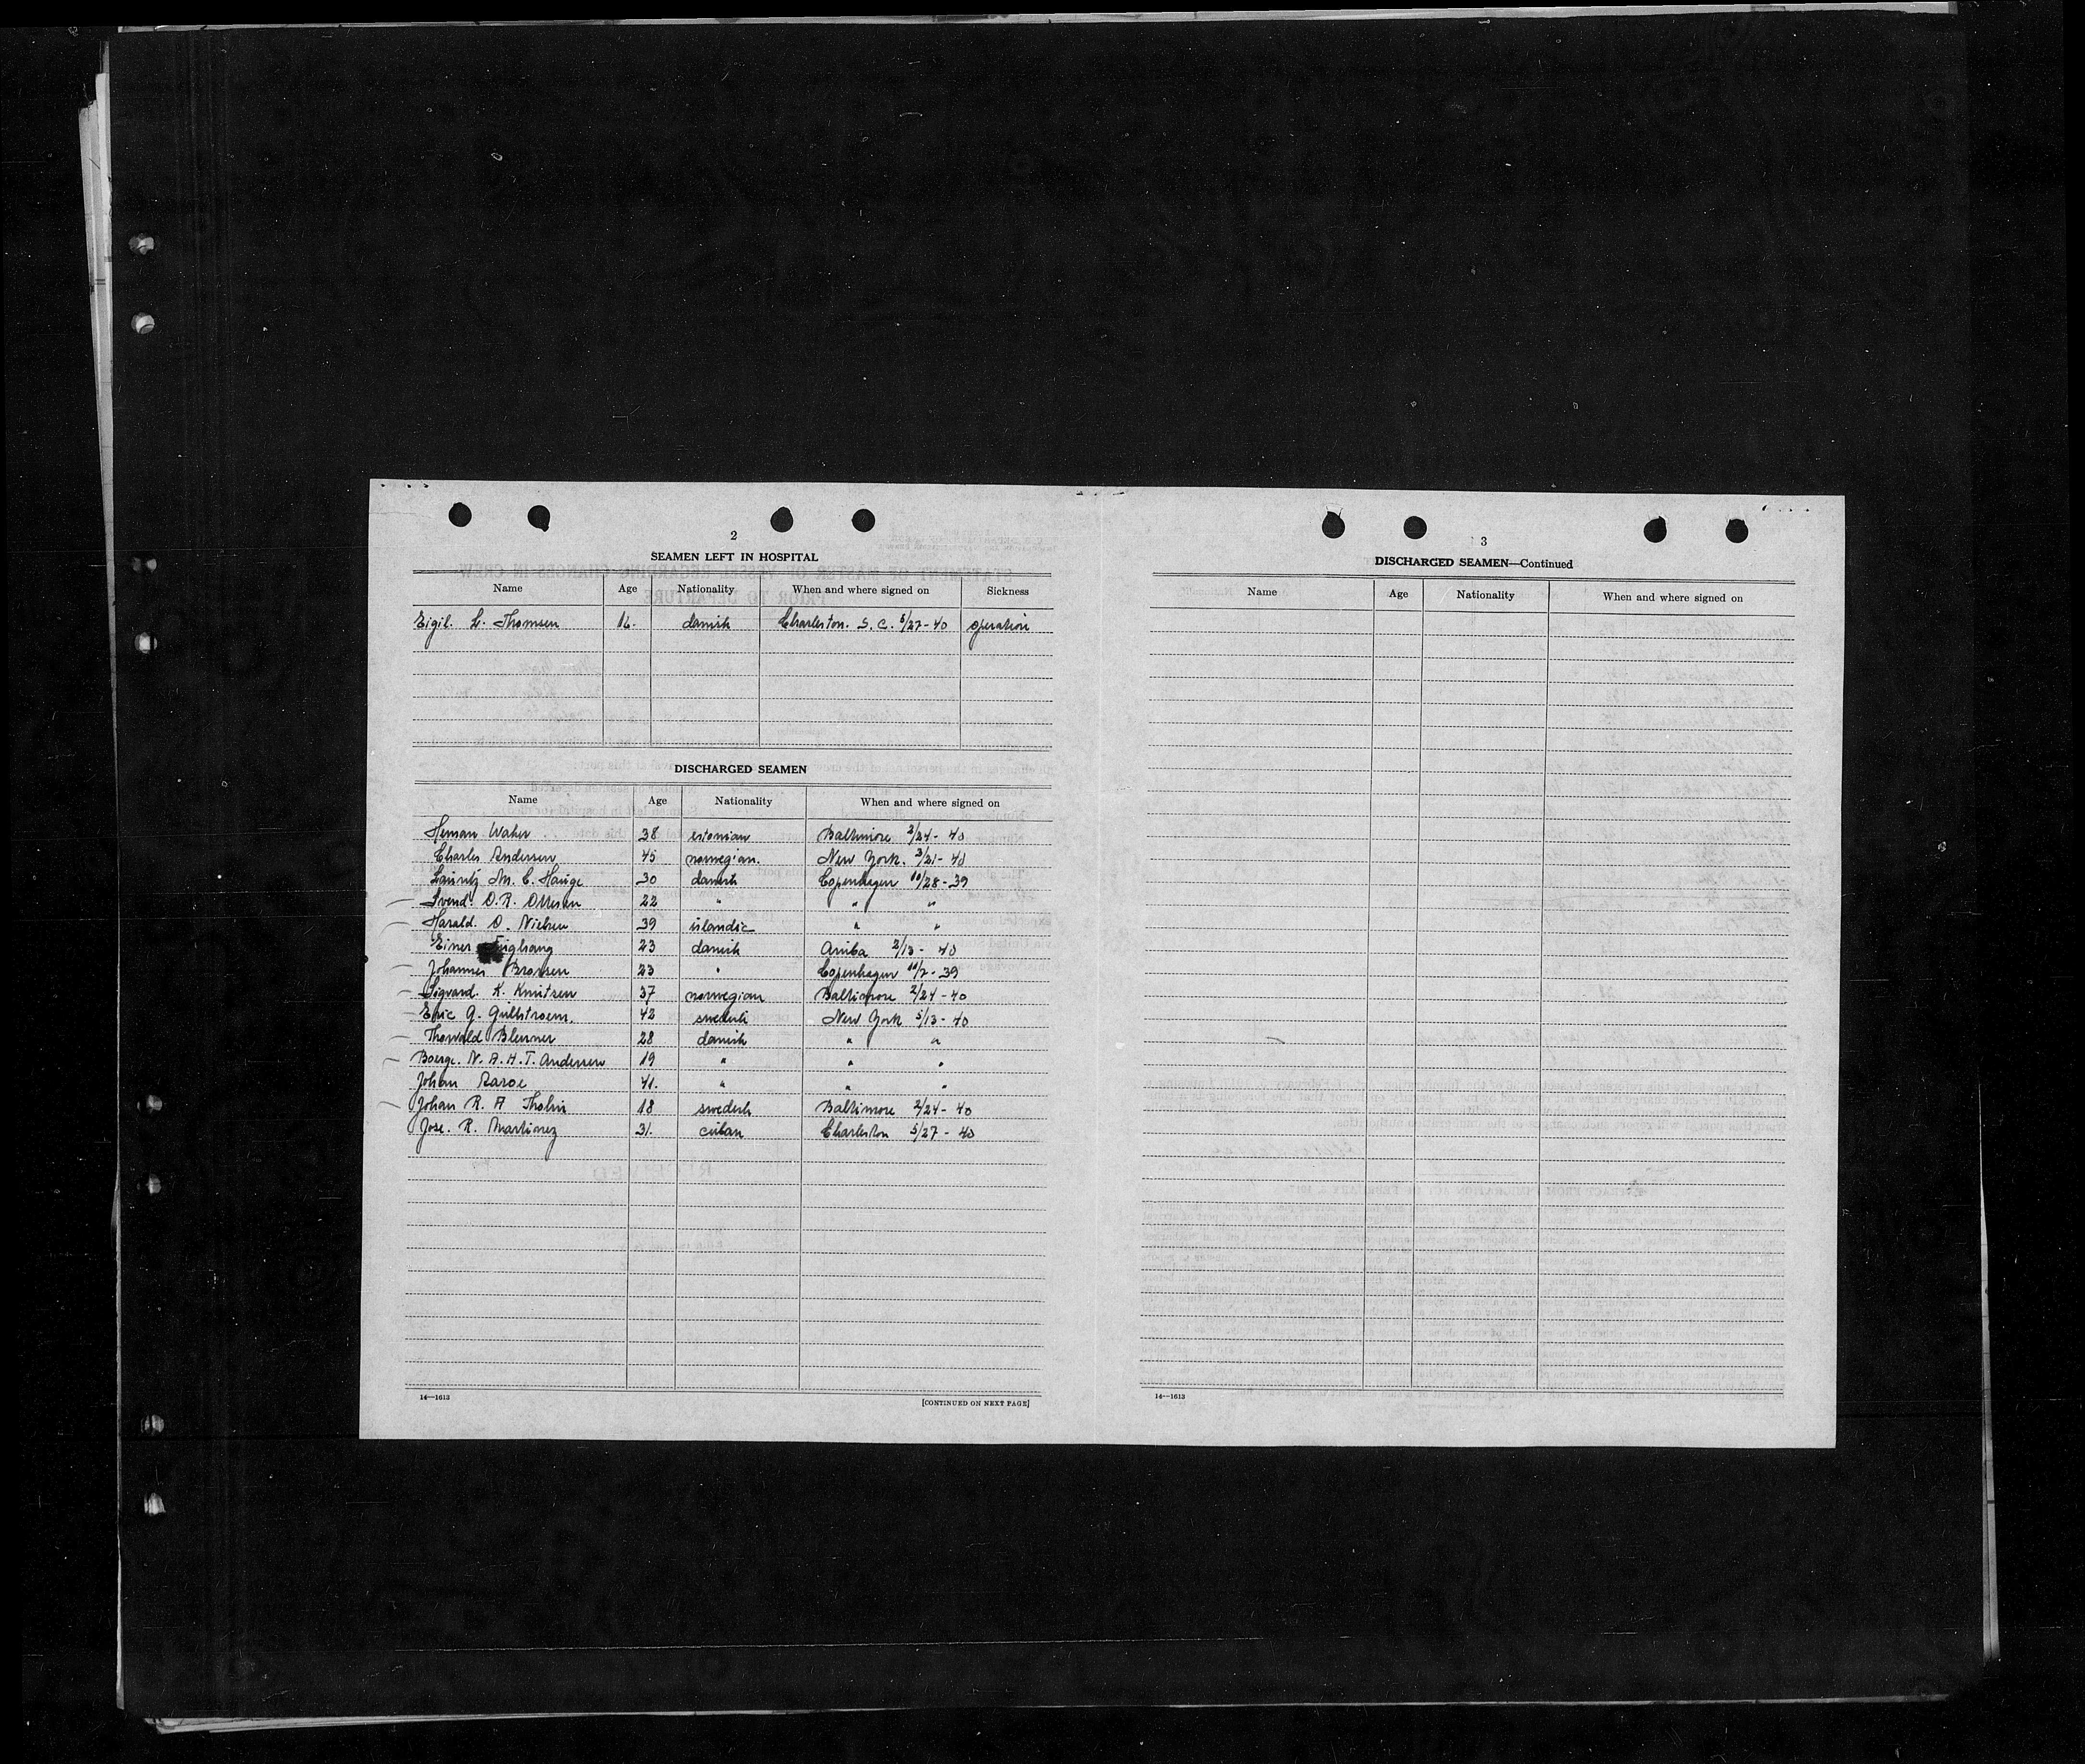 2
SEAMEN LEFT IN HOSPITAL
Name Age Nationality When and where signed on Sickness
Eigil. L. Thomsen 16. danish Charleston. S. C. 5/27-40 operation
DISCHARGED SEAMEN
Name Age Nationality When and where signed on
Herman Waher 38 estonian Baltimore 2/24-40
Charles Andersen 45 norwegian. New York. 3/21-40
Lauritz M. C. Hauge 30 danish Copenhagen 10/28-39
Svend. O. R. Ottesen 22 " " "
Harald. O. Nielsen 39 islandic " "
Einer 23 danish Aruba 2/13-40
Johannes Bronsen 23 " Copenhagen 10/7-39
Sigvard. K. Knutsen 37 norwegian Baltimore 2/24-40
Eric G. Gullstroem. 42 swedish New York 5/13-40
Thorvald Blenner 28 danish " "
Boerge. N. A. H. T. Andersen 19 " " "
Johan Aaroe 41. " " "
Johan R. A Tholin 18 swedish Baltimore 2/24-40
Jose. R. Martinez 31. cuban Charleston 5/27-40
14—1613 [CONTINUED ON NEXT PAGE]
3
DISCHARGED SEAMEN—Continued
Name Age Nationality When and where signed on
14—1613